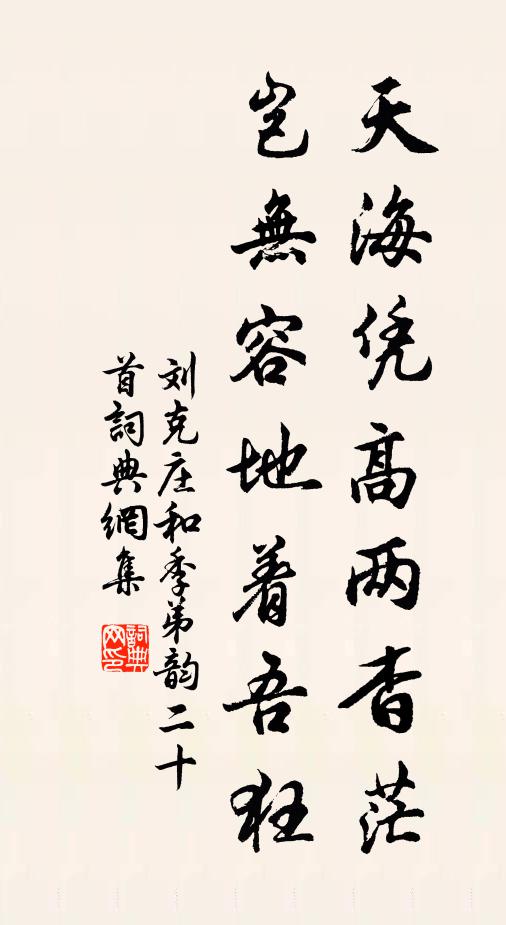 天海凭高两杳茫
岂無容地着吾狂
刘克庄和季弟韵二十
首詞典網集
詞典网印